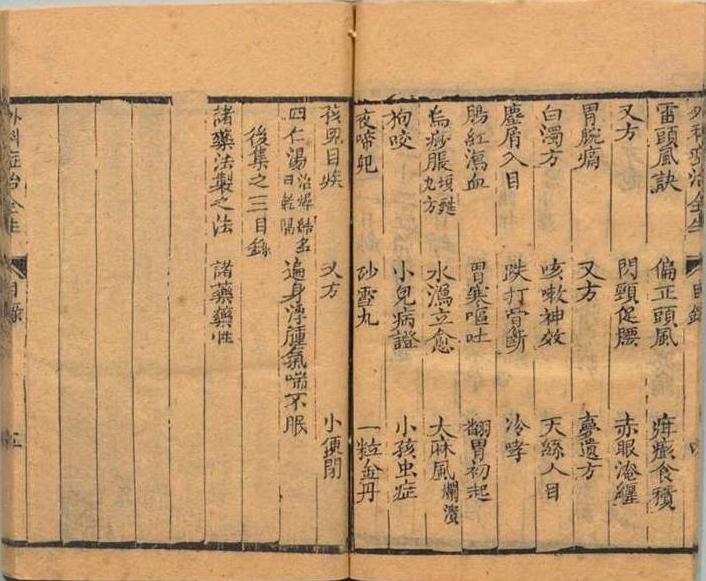 外科症治全生 目錄
雷頭風訣 偏正頭風 疳脹食積
又方 閃頸促腰 赤眼淹纏
胃脘痛 又方 夢遺方
白濁方 咳嗽神效 天絲入目
塵屑入目 跌打骨斷 冷哮
腸紅瀉血 胃寒嘔吐 翻胃初起
烏痧脹 九方 水瀉立愈 大麻風 爛潰
狗咬 小兒病證 小孩虫症
夜啼兒 砂雪丸 一粒金丹
孩兒目疾 又方 小便閉
四仁湯 遍身浮腫氣喘不眠
後集之三目錄
諸藥法製之法 諸藥藥性
外科症治全生 目錄